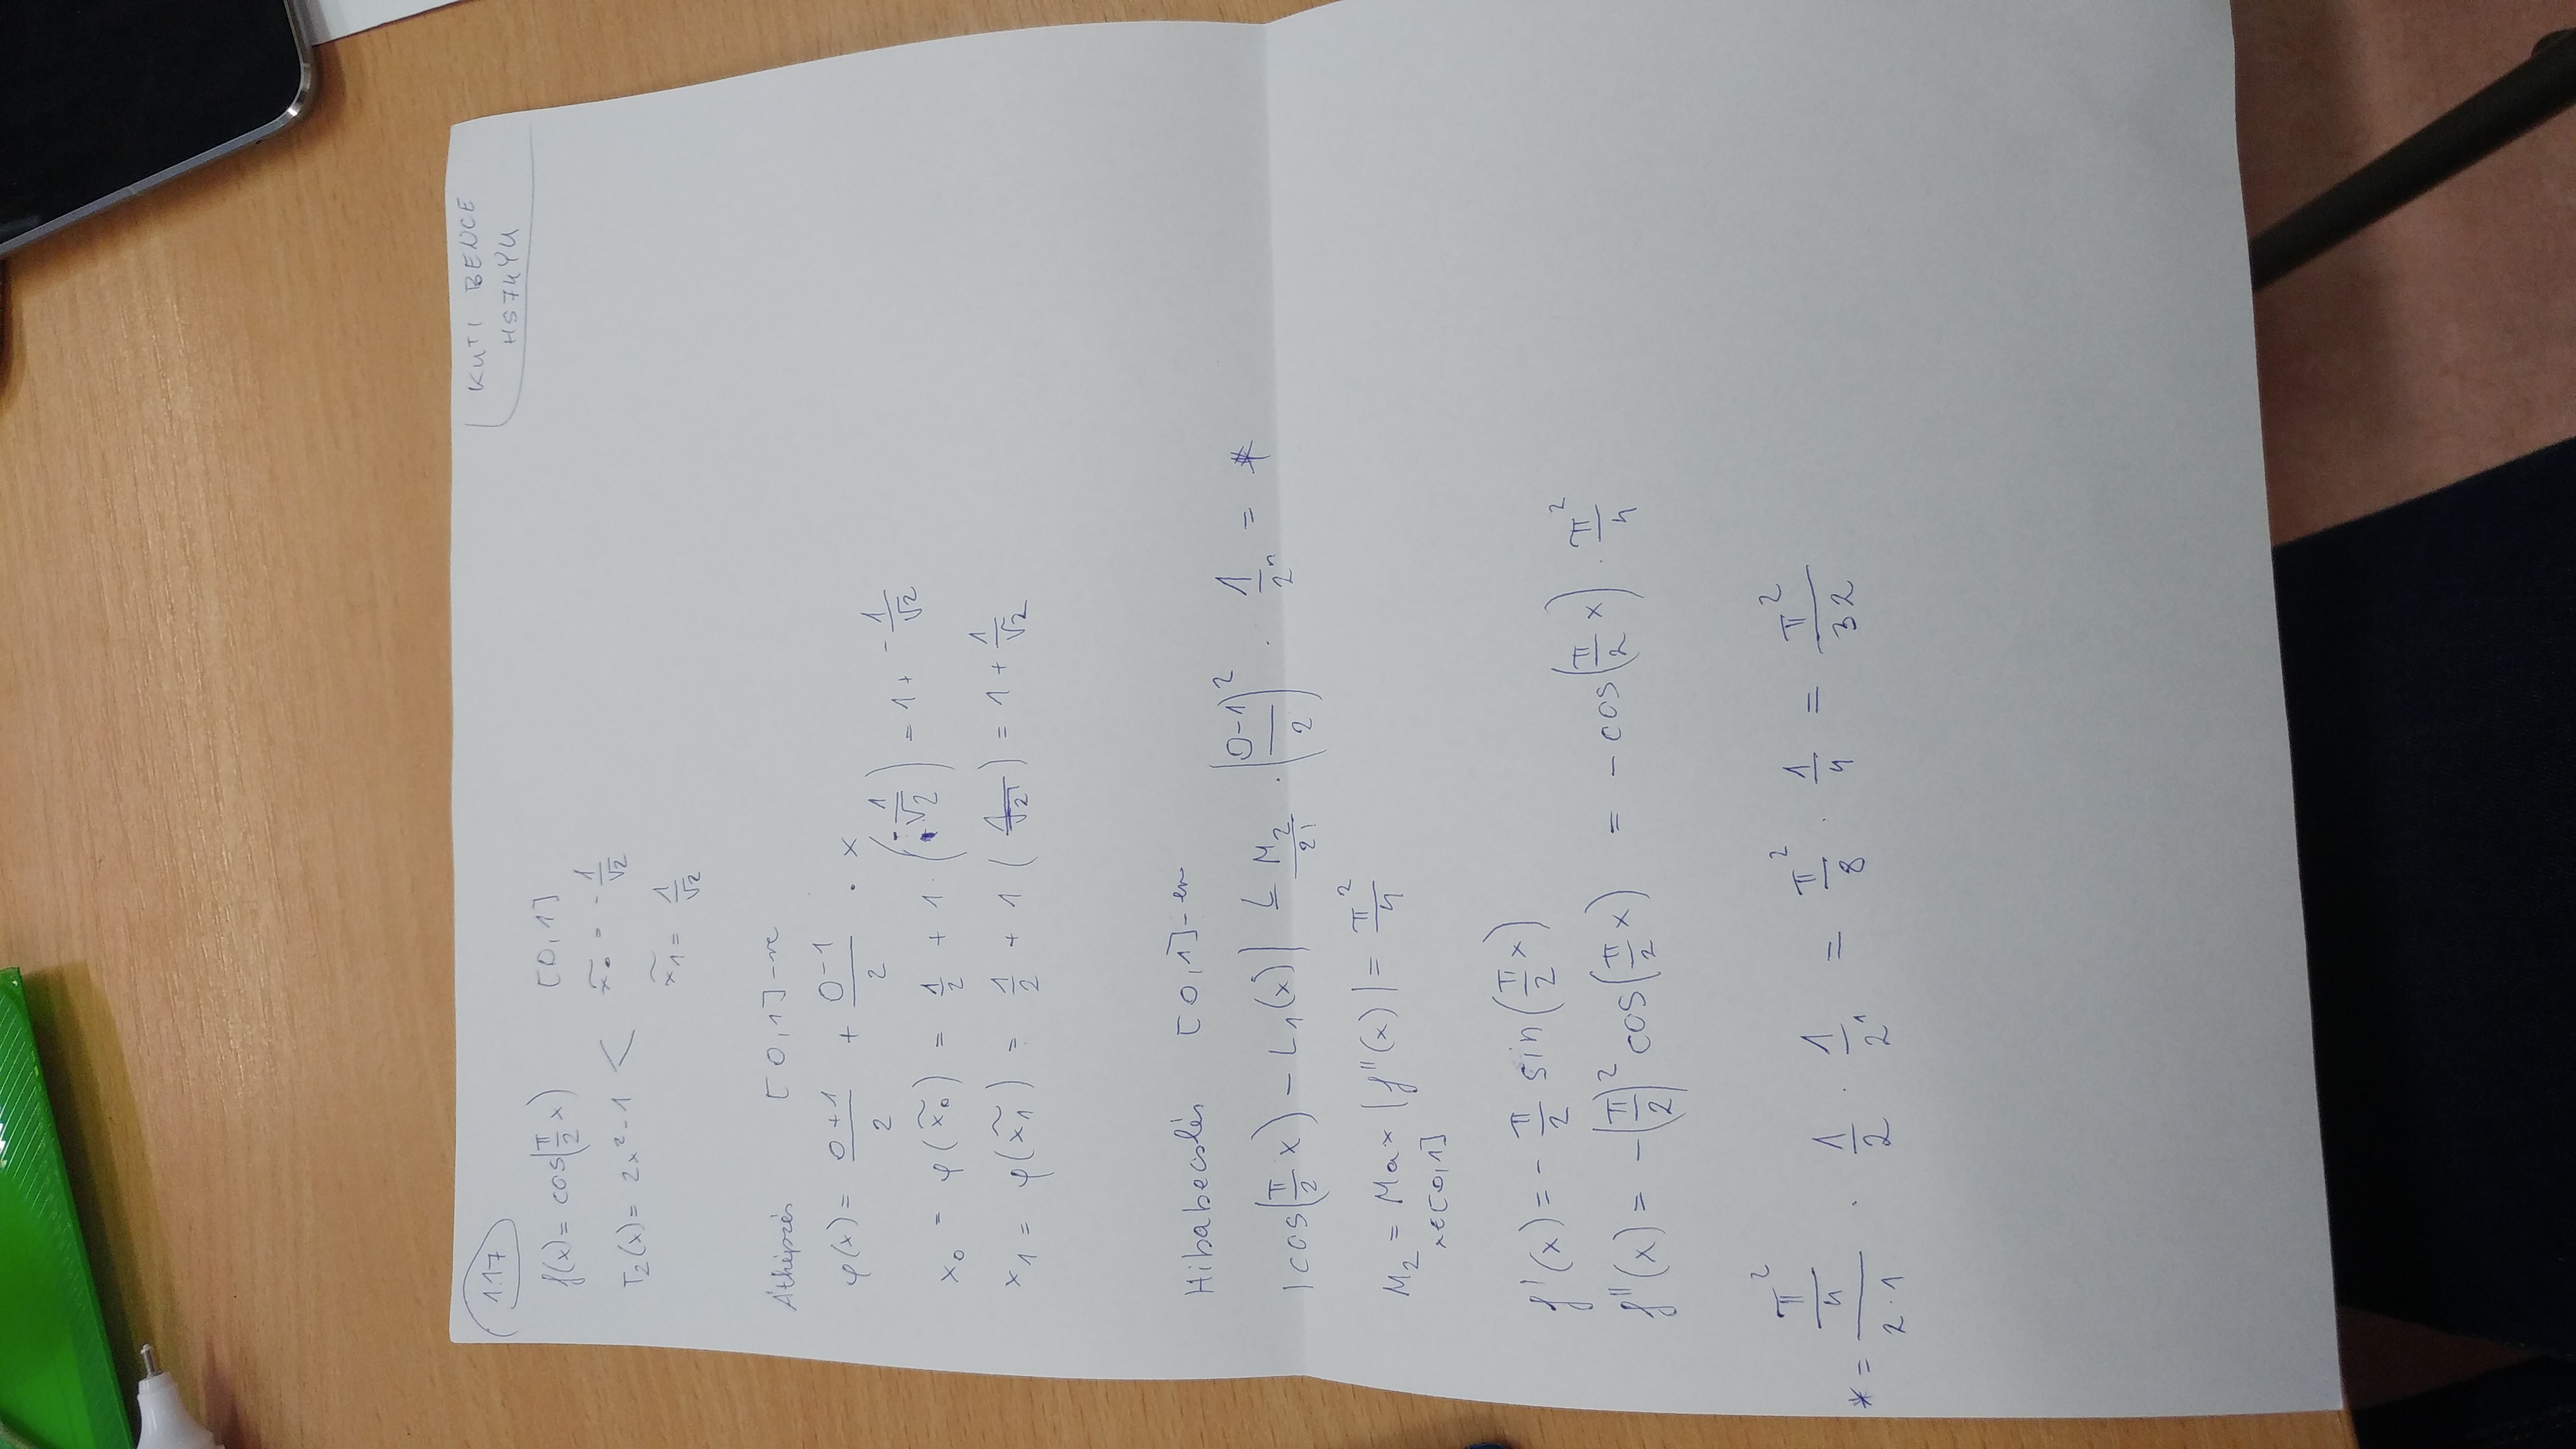 1.17
KUTI BENCE
HS74YU
f(x) = cos(π/2 x) [0,1]
T₂(x) = 2x² - 1 < x̃₀ = - 1/√2
x̃₁ = 1/√2
Átképzés [0,1]-re
φ(x) = (0+1)/2 + (0-1)/2 · x
x₀ = φ(x̃₀) = 1/2 + 1 · (-1/√2) = 1 + - 1/√2
x₁ = φ(x̃₁) = 1/2 + 1 (1/√2) = 1 + 1/√2
Hibabecslés [0,1]-en
|cos(π/2 x) - L₁(x)| ≤ M₂/2! · ((0-1)/2)² · 1/2ⁿ = *
M₂ = Max |f''(x)| = π²/4
x∈[0,1]
f'(x) = - π/2 sin(π/2 x)
f''(x) = -(π/2)² cos(π/2 x) = - cos(π/2 x) · π²/4
* = (π²/4)/(2·1) · 1/2 · 1/2¹ = π²/8 · 1/4 = π²/32